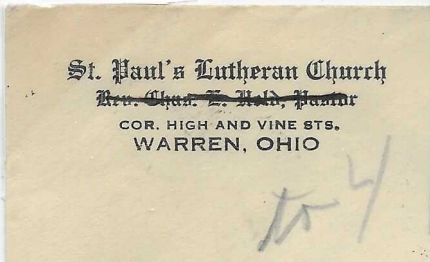 St. Paul's Lutheran Church
Rev. Chas. E. Held, Pastor
COR. HIGH AND VINE STS.
WARREN, OHIO
to 4